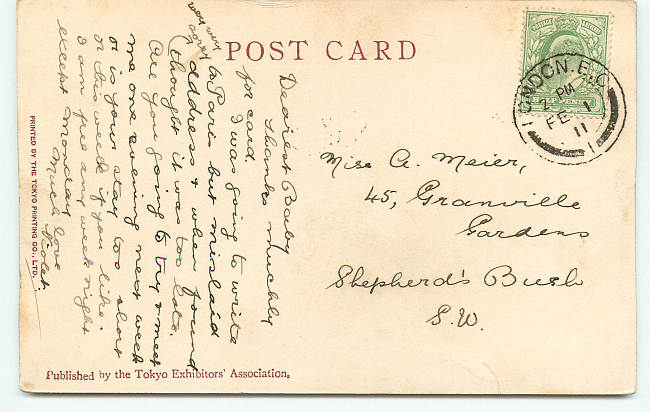 POST CARD
LONDON. E.C
2 PM
FE 1
11
Miss A. Meier,
45, Granville
Gardens
Shepherd's Bush
S.W.
Dearest Baby
Thanks muchly
for card.
I was going to write
to Paris but mislaid
address & when found
thought it was too late.
very very
sorry
Are you going to try & meet
me one evening next week
or is your stay too short
or this week if you like.
I am free any week night
except Monday
Much love
Violet.
PRINTED BY THE TOKYO PRINTING CO., LTD.
Published by the Tokyo Exhibitors' Association.